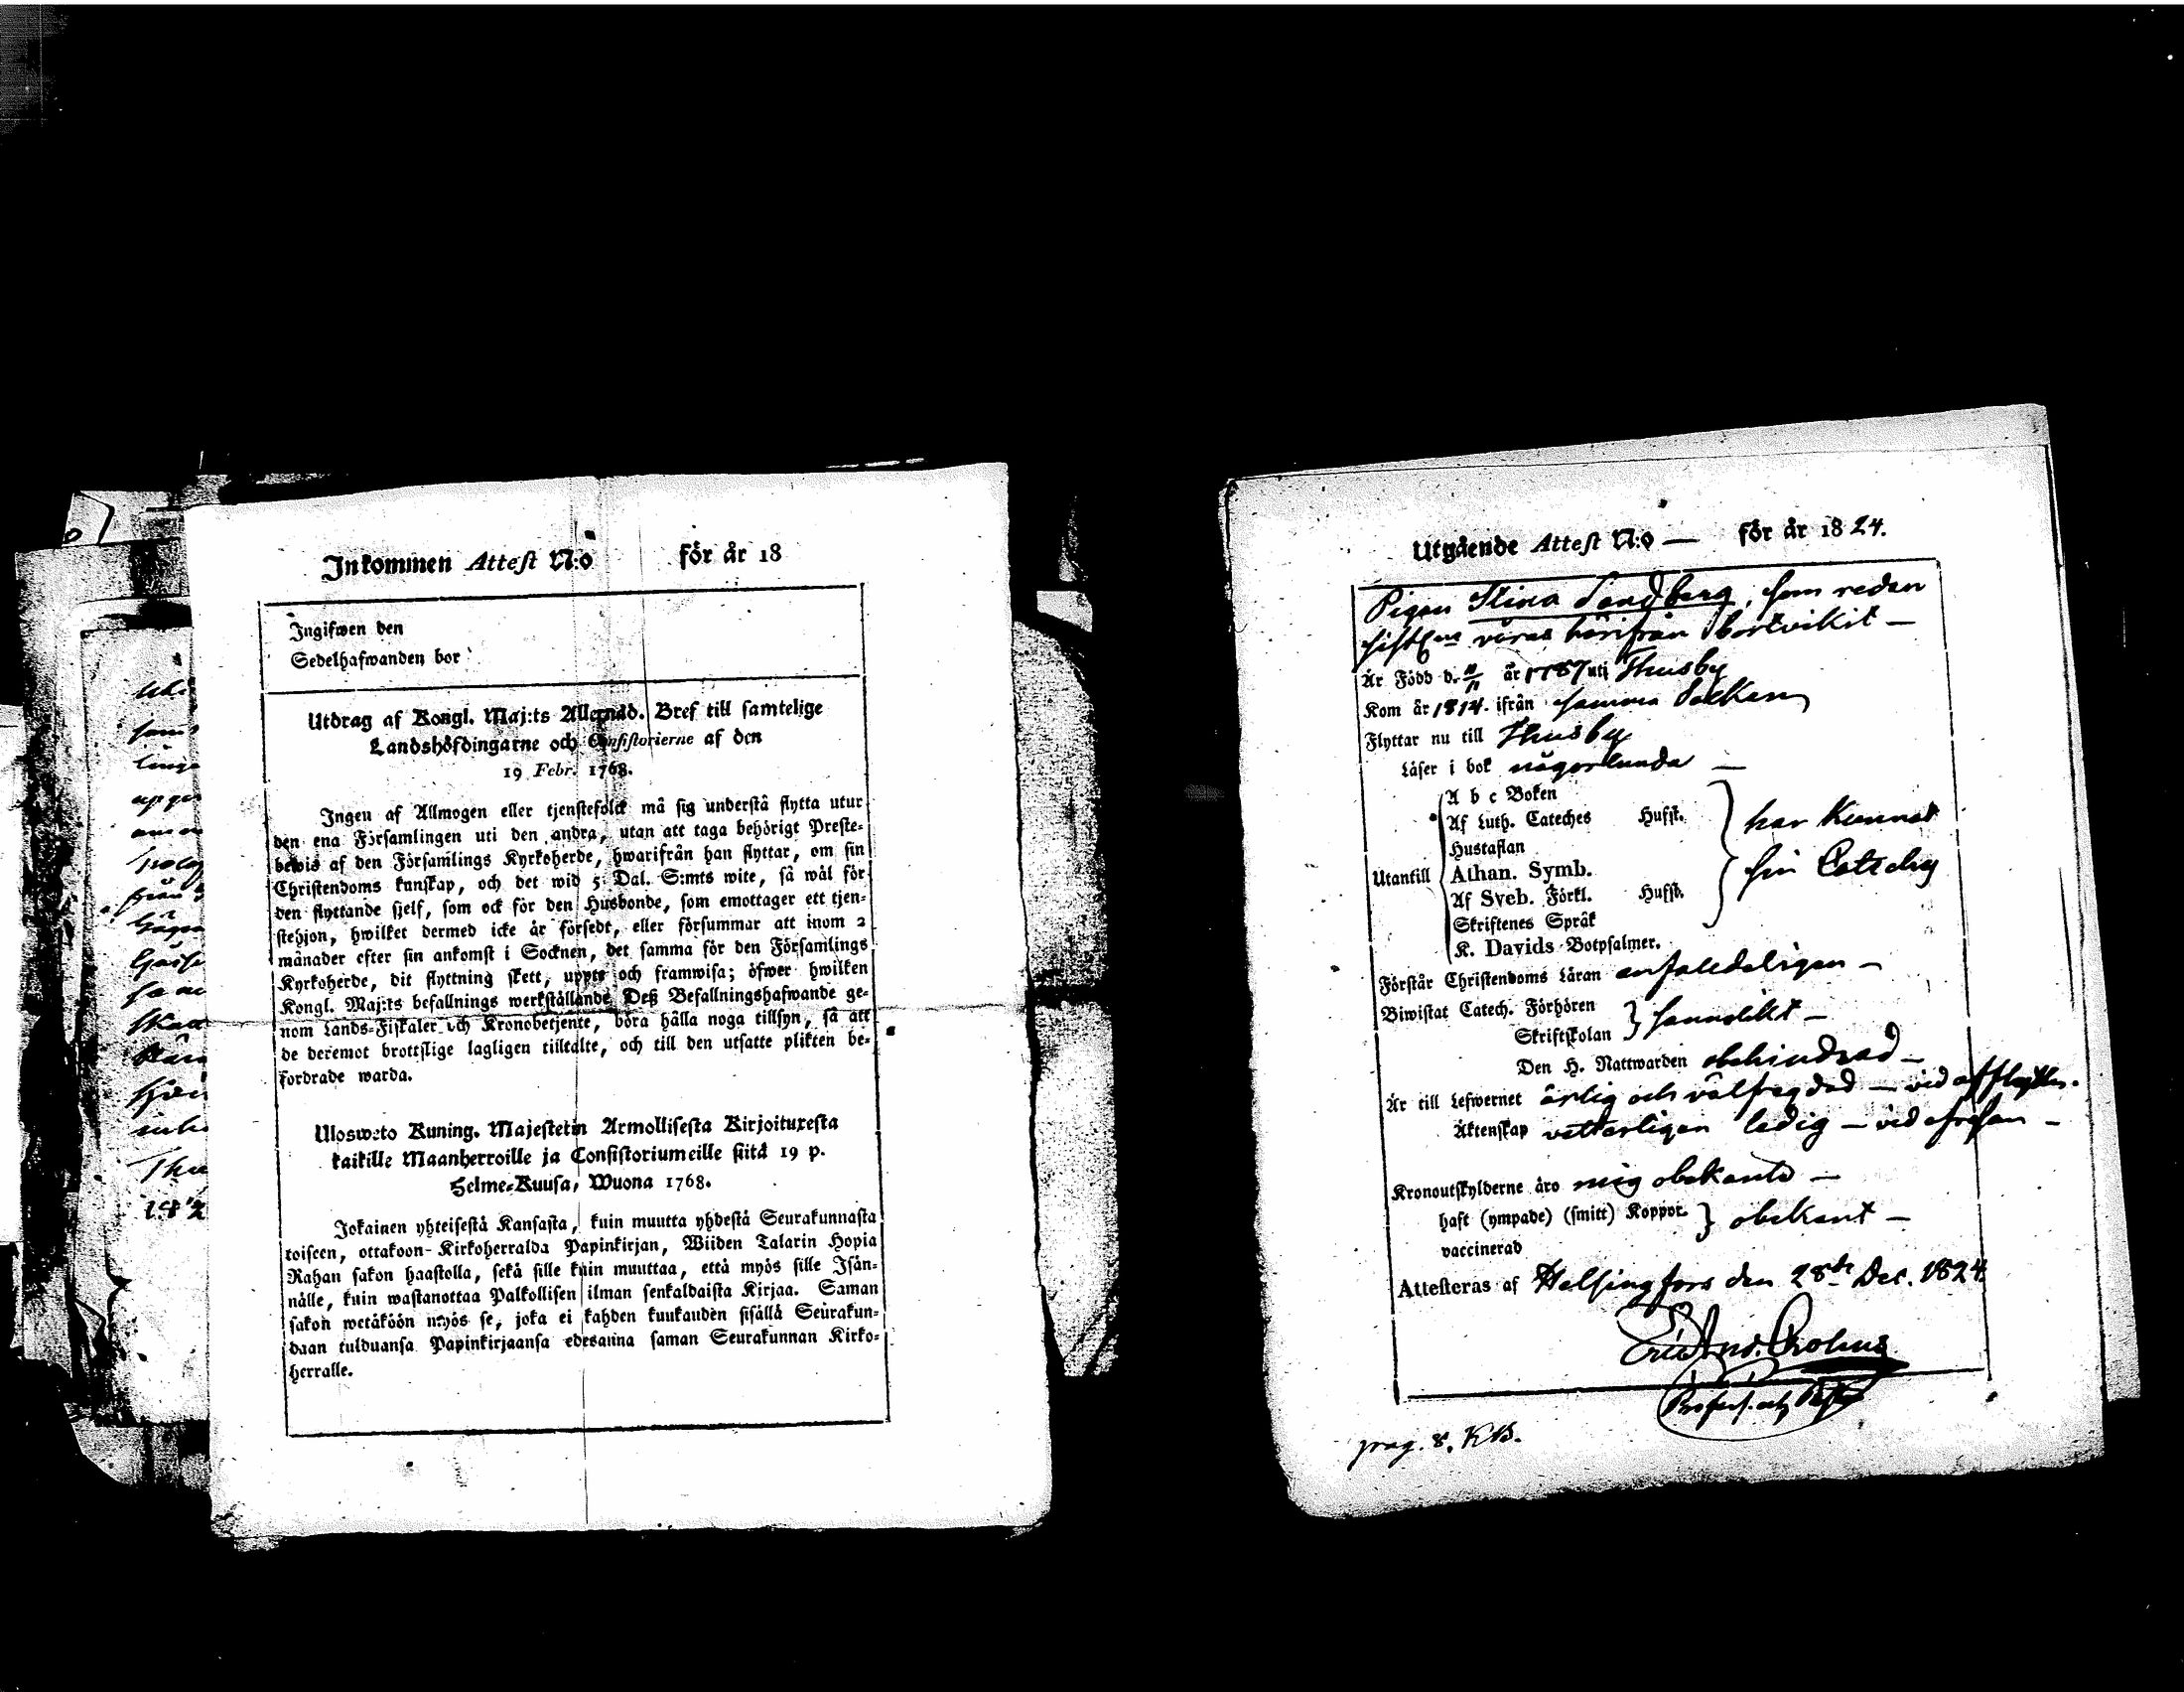 Inkommen Attest N:o för år 18
Ingifwen den
Sedelhafwanden bor
Utdrag af Kongl. Maj:ts Allernåd. Bref till samtelige
Landshöfdingarne och Consistorierne af den
19 Febr. 1768.
Ingen af Allmogen eller tjenstefolck må sig understå flytta utur
den ena Församlingen uti den andra, utan att taga behörigt Preste-
bewis af den Församlings Kyrkoherde, hwarifrån han flyttar, om sin
Christendoms kunskap, och det wid 5 Dal. S:mts wite, så wäl för
den flyttande sjelf, som ock för den Husbonde, som emottager ett tjen-
stehjon, hwilket dermed icke är försedt, eller försummar att inom 2
månader efter sin ankomst i Socknen, det samma för den Församlings
Kyrkoherde, dit flyttning skett, uppte och framwisa; öfwer hwilken
Kongl. Maj:ts befallnings werkställande Deß Befallningshafwande ge-
nom Lands-Fiskaler och Kronobetjente, böra hålla noga tillsyn, så att
de deremot brottslige lagligen tilltalte, och till den utsatte plikten be-
fordrade warda.
Ulosweto Kuning. Majestetin Armollisesta Kirjoituxesta
kaikille Maanherroille ja Consistoriumeille siitä 19 p.
Helme-Kuusa, Wuona 1768.
Jokainen yhteisestä Kansasta, kuin muutta yhdestä Seurakunnasta
toiseen, ottakoon Kirkoherralda Papinkirjan, Wiiden Talarin Hopia
Rahan sakon haastolla, sekä sille kuin muuttaa, että myös sille Isän-
nälle, kuin wastanottaa Palkollisen ilman senkaldaista Kirjaa. Saman
sakon wetäköön myös se, joka ei kahden kuukauden sisällä Seurakun-
daan tulduansa Papinkirjaansa edesanna saman Seurakunnan Kirko-
herralle.
Utgående Attest N:o — för år 1824.
Pigan Stina Sandberg, som redan
sistl. våras härifrån bortvikit —
Är Född d. 11 år 1787 uti Thusby
Kom år 1814. ifrån samma Socken
Flyttar nu till Thusby
Läser i bok någorlunda —
A b c Boken
Af Luth. Cateches Hufst.
Hustaflan
Utantill Athan. Symb.
Af Sveb. Förkl. Hufst.
Skriftenes Språk
K. Davids Botpsalmer.
har kunnat
sin Cateches
Förstår Christendoms Läran enfaldeligen —
Biwistat Catech. Förhören
Skriftskolan
Den H. Nattwarden obehindrad —
Är till Lefwernet ärlig och välfrägdad — vid afflytten.
Äktenskap vetterligen ledig — vid afresan —
Kronoutskylderne äro mig obekante —
haft (ympade) (smitt) Koppor. obekant —
vaccinerad
Attesteras af Helsingfors den 28de Dec. 1824
pag. 8. KB.